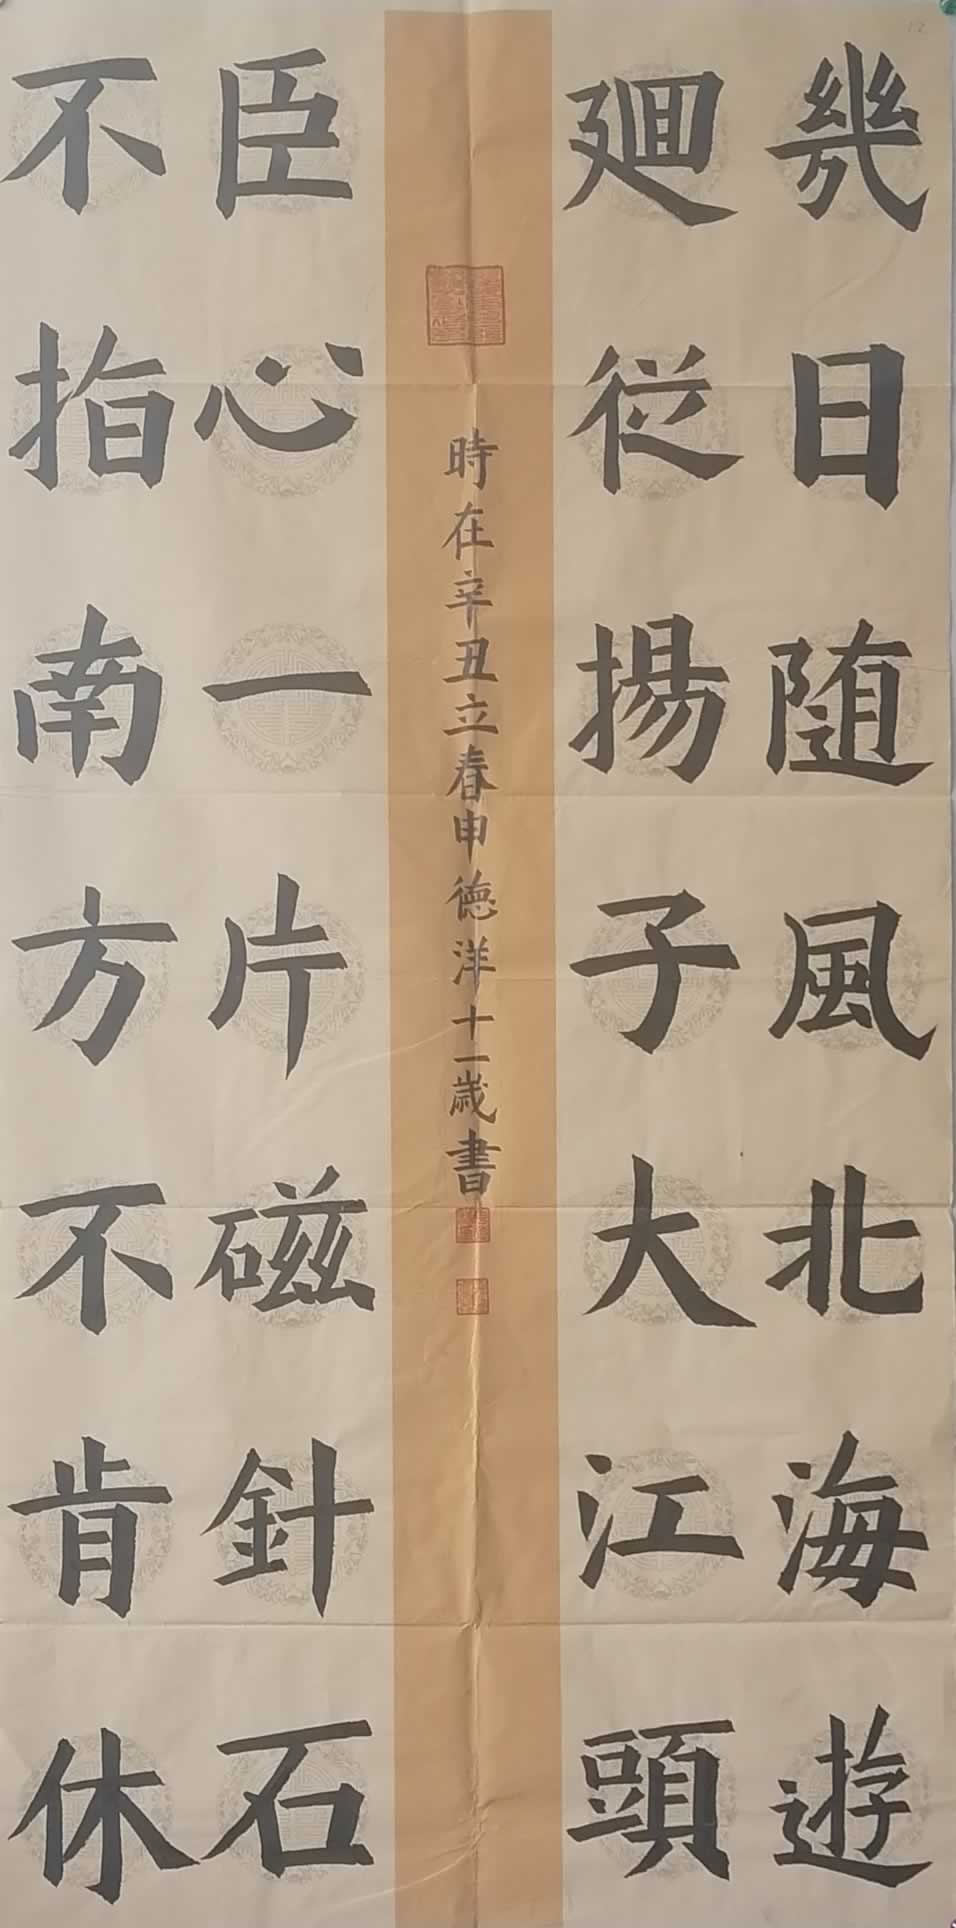 幾日随風北海遊
廻從揚子大江頭
時在辛丑立春申德洋十一歲書
臣心一片磁針石
不指南方不肯休